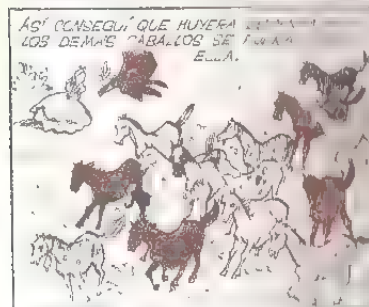 ASÍ CONSEGUÍ QUE HUYERA
LOS DEMÁS CABALLOS SE
ELLA.